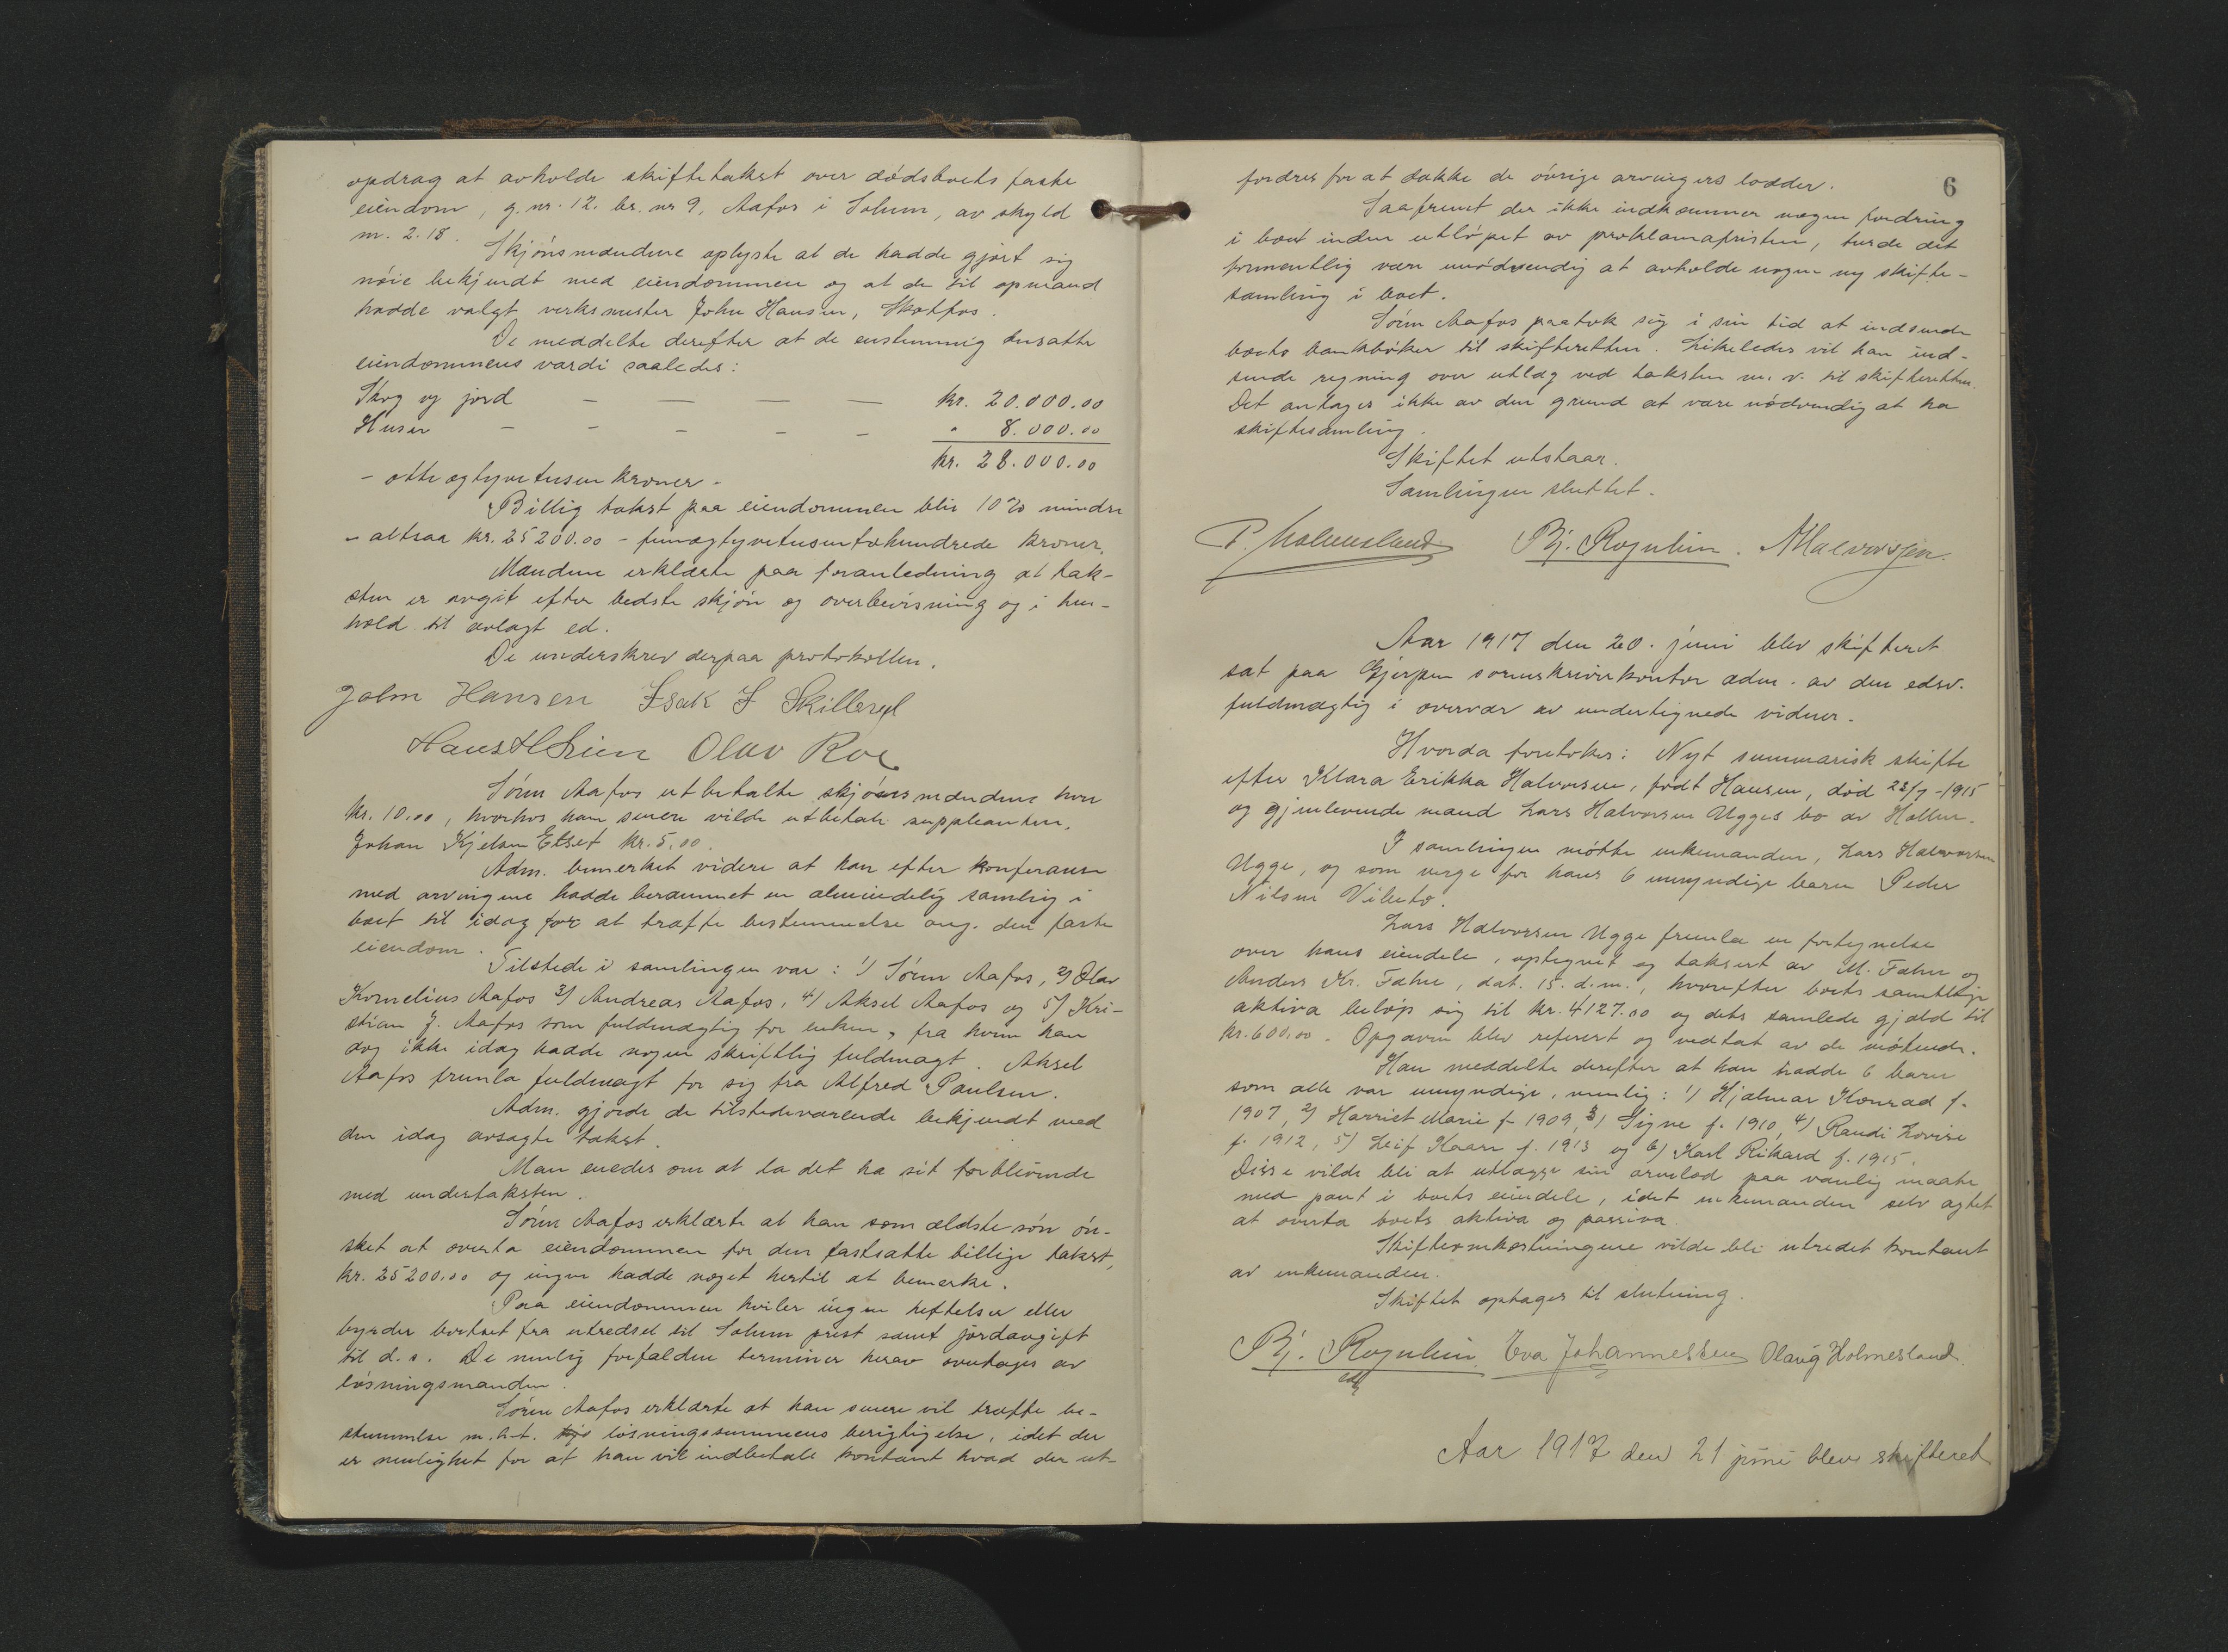 opdrag at avholde skiftetakst over dødsboets faste
eiendom, g.nr. 12. br. nr 9, Aafos i Solum, av skyld
m. 2.18.
Skjønsmændene oplyste at de hadde gjort sig
nøie bekjendt med eiendommen og at de til opmand
hadde valgt verksmester John Hansen, Skotfos.
De meddelte derefter at de enstemmig ansatte
eiendommens værdi saaledes:
Skog og jord — — — — kr. 20.000.00
Huser — — — — — " 8.000.00
kr. 28.000.00
- otteogtyvetusen kroner -
Billig takst paa eiendommen blir 10% mindre
- altsaa kr. 25200.00 - femogtyvetusentohundrede kroner.
Mændene erklærte paa foranledning at tak-
sten er avgit efter bedste skjøn og overbevisning og i hen-
hold til avlagt ed.
De underskrev derpaa protokollen.
John Hansen Isak I Skilbred
Hans H Lien Olav Roe
Søren Aafos utbetalte skjønsmændene hver
kr. 10.00, hvorhos han senere vilde utbetale suppleanten,
Johan Kjelsen Etset kr. 5.00.
Adm. bemerket videre at han efter konferanse
med arvingene hadde berammet en almindelig samling i
boet til idag for at træffe bestemmelse ang. den faste
eiendom.
Tilstede i samlingen var: 1) Søren Aafos, 2) Olav
Kornelius Aafos 3) Andreas Aafos, 4) Aksel Aafos og 5) Kri-
stian J. Aafos som fuldmægtig for enken, fra hvem han
dog ikke idag hadde nogen skriftlig fuldmagt. Aksel
Aafos fremla fuldmagt for sig fra Alfred Paulsen.
Adm. gjorde de tilstedeværende bekjendt med
den idag avsagte takst.
Man enedes om at la det ha sit forblivende
med undertaksten.
Søren Aafos erklærte at han som ældste søn øn-
sket at overta eiendommen for den fastsatte billige takst,
kr. 25200.00 og ingen hadde noget hertil at bemerke.
Paa eiendommen hviler ingen heftelser eller
byrder bortset fra utredsel til Solum prest samt jordavgift
til d. s. De mulig forfaldne terminer herav overtages av
løsningsmanden.
Søren Aafos erklærte at han senere vil træffe be-
stemmelse m.h.t. løsningssummens berigtigelse, idet der
er mulighet for at han vil indbetale kontant hvad der ut-
6
fordres for at dække de øvrige arvingers lodder.
Saafremt der ikke indkommer nogen fordring
i boet inden utløpet av proklamafristen, turde det
formentlig være unødvendig at avholde nogen ny skifte-
samling i boet.
Søren Aafos paatok sig i sin tid at indsende
boets bankbøker til skifteretten. Likeledes vil han ind-
sende regning over utlæg ved taksten m. v. til skifteretten.
Det antages ikke av den grund at være nødvendig at ha
skiftesamling.
Skiftet utstaar.
Samlingen sluttet.
P. Holmesland Bj. Rognlien. A Halvorsen.
Aar 1917 den 20. juni blev skifteret
sat paa Gjerpen sorenskriverkontor adm. av den edsv.
fuldmægtig i overvær av undertegnede vidner.
Hvorda foretokes: Nyt summarisk skifte
efter Klara Erikka Halvorsen, født Hansen, død 23/7-1915
og gjenlevende mand Lars Halvorsen Ugges bo av Hollen.
I samlingen møtte enkemanden, Lars Halvorsen
Ugge, og som verge for hans 6 umyndige barn Peder
Nilsen Vibeto.
Lars Halvorsen Ugge fremla en fortegnelse
over hans eiendele, optegnet og taksert av M. Fahn og
Anders Kr. Fahn, dat. 15. d.m., hvorefter boets samtlige
aktiva beløp sig til kr. 4127.00 og dets samlede gjæld til
kr. 600.00. Opgaven blev referert og vedtat av de møtende.
Han meddelte derefter at han hadde 6 barn
som alle var umyndige, nemlig: 1) Hjalmar Konrad f.
1907, 2) Harriet Marie f. 1909, 3) Signe f. 1910, 4) Randi Lovise
f. 1912, 5) Leif Kaare f. 1913 og 6) Karl Rikard f. 1915.
Disse vilde bli at utlægge sin arvelod paa vanlig maate
med pant i boets eiendele, idet enkemanden selv agtet
at overta boets aktiva og passiva.
Skifteomkostningene vilde bli utredet kontant
av enkemanden.
Skiftet optages til slutning.
Bj. Rognlien Eva Johannessen Olaug Holmesland.
Aar 1917 den 21 juni blev skifteret